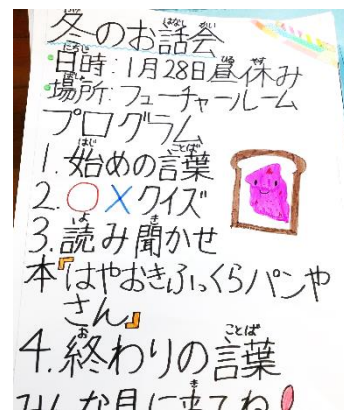 冬のお話会
日時:1月28日昼休み
場所:フューチャールーム
プログラム
1.始めの言葉
2.○×クイズ
3.読み聞かせ
本『はやおきふっくらパンや
さん』
4.終わりの言葉
みんな見に来てね!